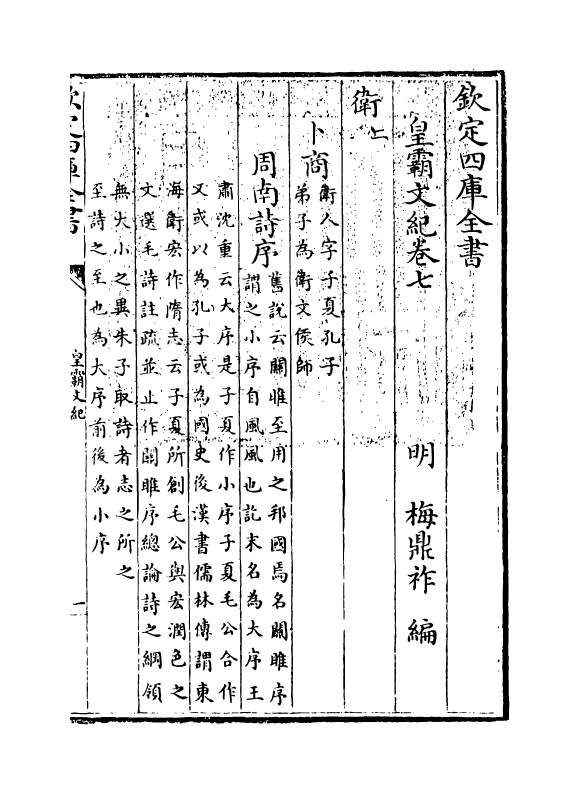 欽定四庫全書
皇霸文紀卷七　明　梅鼎祚　編
衛上
卜商
衛人字子夏孔子
弟子為衛文侯師
周南詩序
舊說云關雎至用之邦國焉名關雎序
謂之小序自風風也訖末名為大序王
肅沈重云大序是子夏作小序子夏毛公合作
又或以為孔子或為國史後漢書儒林傳謂東
海衛宏作隋志云子夏所創毛公與宏潤色之
文選毛詩註疏並止作關雎序總論詩之綱領
無大小之異朱子取詩者志之所之
至詩之至也為大序前後為小序
欽定四庫全書
皇霸文紀
一